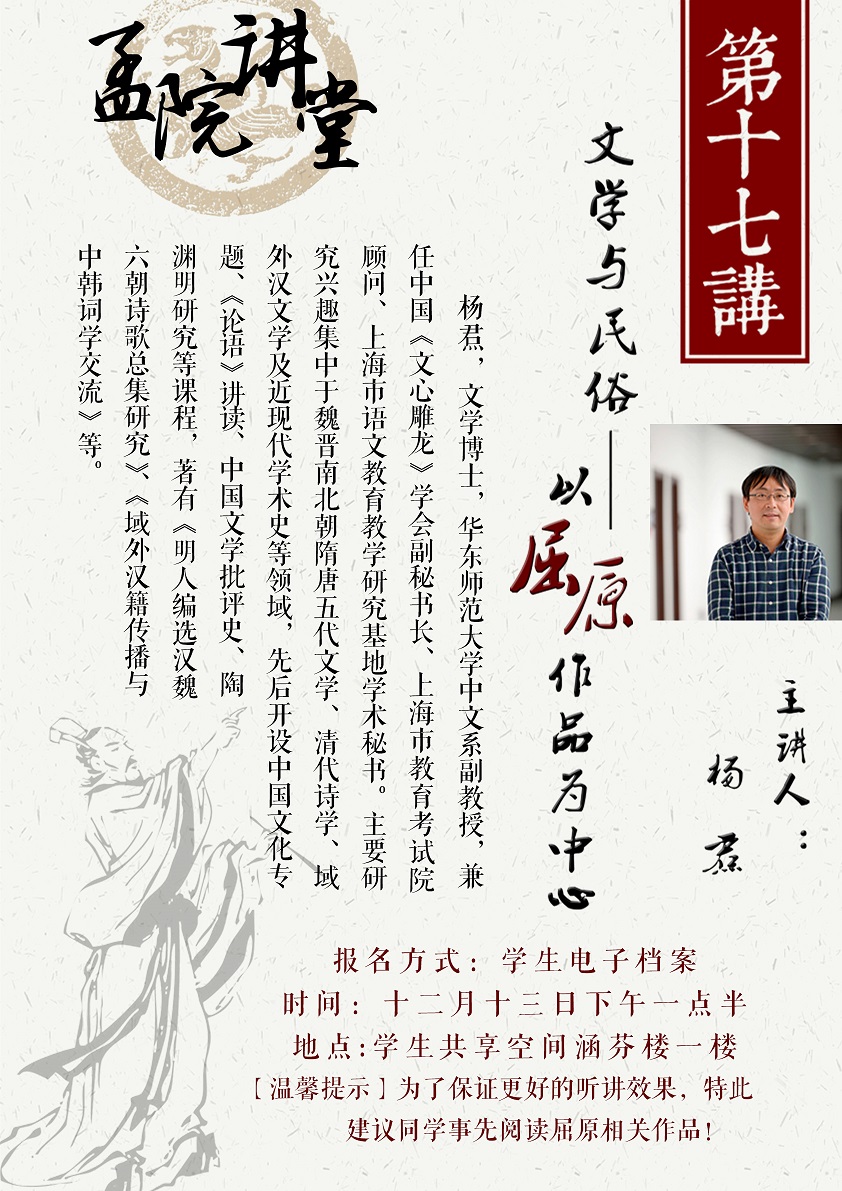 孟院讲堂
第十七講
文学与民俗——
以屈原作品为中心
主讲人：
杨焄
杨焄，文学博士，华东师范大学中文系副教授，兼
任中国《文心雕龙》学会副秘书长、上海市教育考试院
顾问、上海市语文教育教学研究基地学术秘书。主要研
究兴趣集中于魏晋南北朝隋唐五代文学、清代诗学、域
外汉文学及近现代学术史等领域，先后开设中国文化专
题、《论语》讲读、中国文学批评史、陶
渊明研究等课程，著有《明人编选汉魏
六朝诗歌总集研究》、《域外汉籍传播与
中韩词学交流》等。
报名方式：学生电子档案
时间：十二月十三日下午一点半
地点:学生共享空间涵芬楼一楼
【温馨提示】为了保证更好的听讲效果，特此
建议同学事先阅读屈原相关作品！